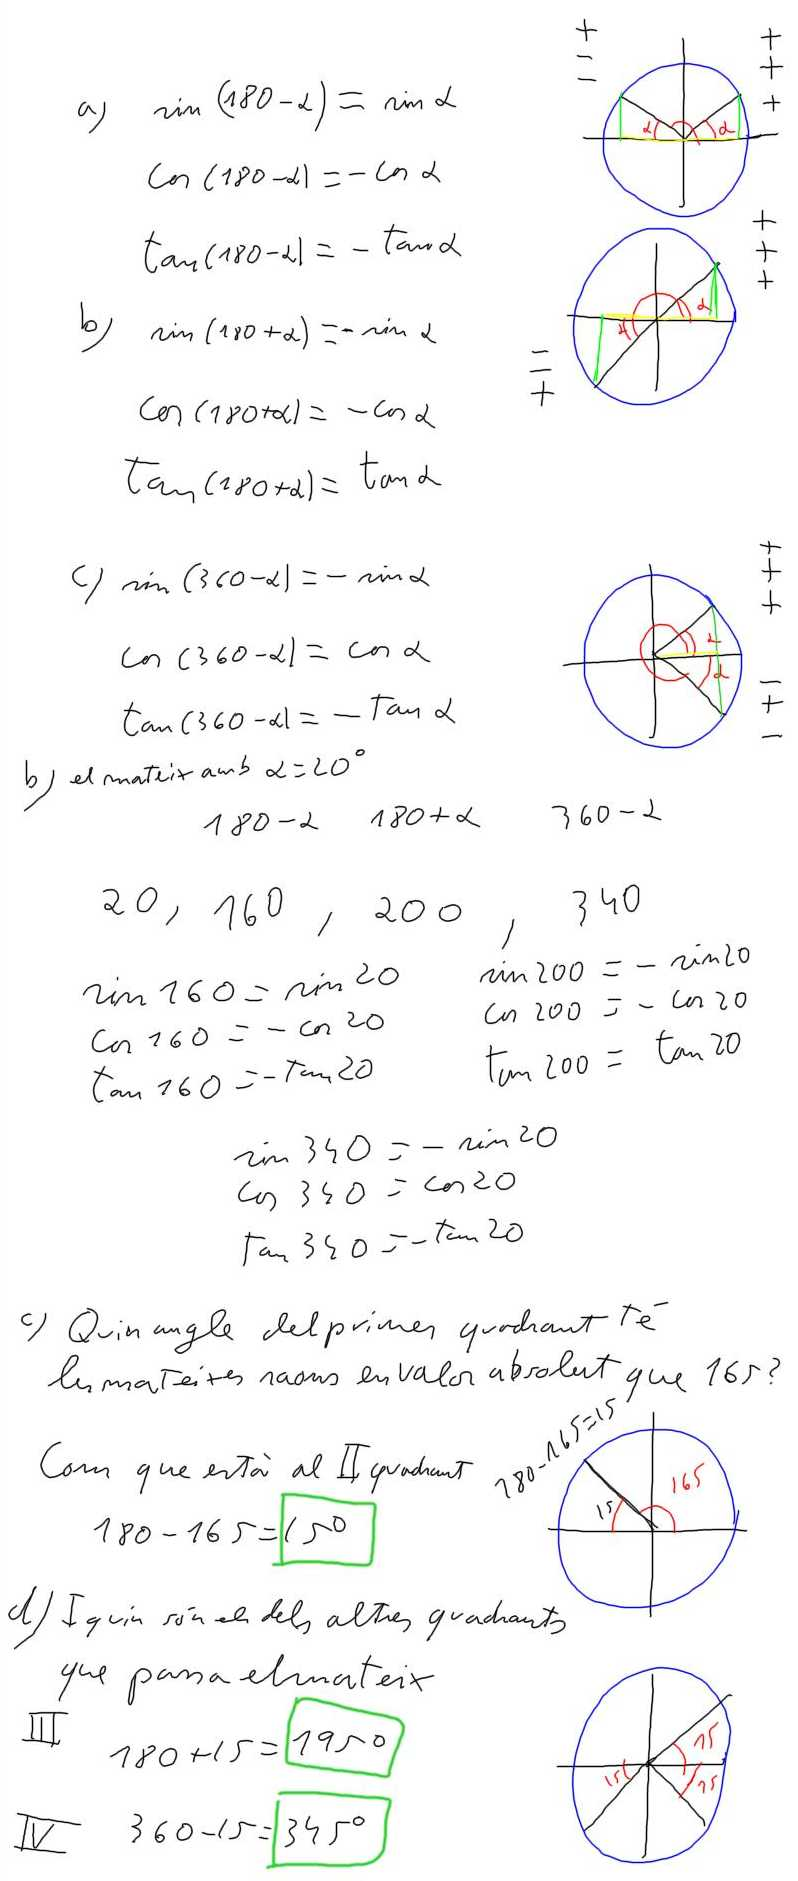 a) sin (180-α) = sin α
cos (180-α) = - cos α
tan (180-α) = - tan α
+
-
-
+
+
+
α α
b) sin (180+α) = - sin α
cos (180+α) = - cos α
tan (180+α) = tan α
+
+
+
-
-
+
α α
c) sin (360-α) = - sin α
cos (360-α) = cos α
tan (360-α) = - tan α
+
+
+
-
+
-
α
α
b) el mateix amb α=20°
180-α 180+α 360-α
20, 160, 200, 340
sin 160 = sin 20
cos 160 = - cos 20
tan 160 = - tan 20
sin 200 = - sin 20
cos 200 = - cos 20
tan 200 = tan 20
sin 340 = - sin 20
cos 340 = cos 20
tan 340 = - tan 20
c) Quin angle del primer quadrant té
les mateixes raons en valor absolut que 165?
Com que està al II quadrant
180-165 = 15°
180-165=15
15 165
d) I quin són els dels altres quadrants
que passa el mateix
III 180+15 = 195°
IV 360-15 = 345°
15
15 15